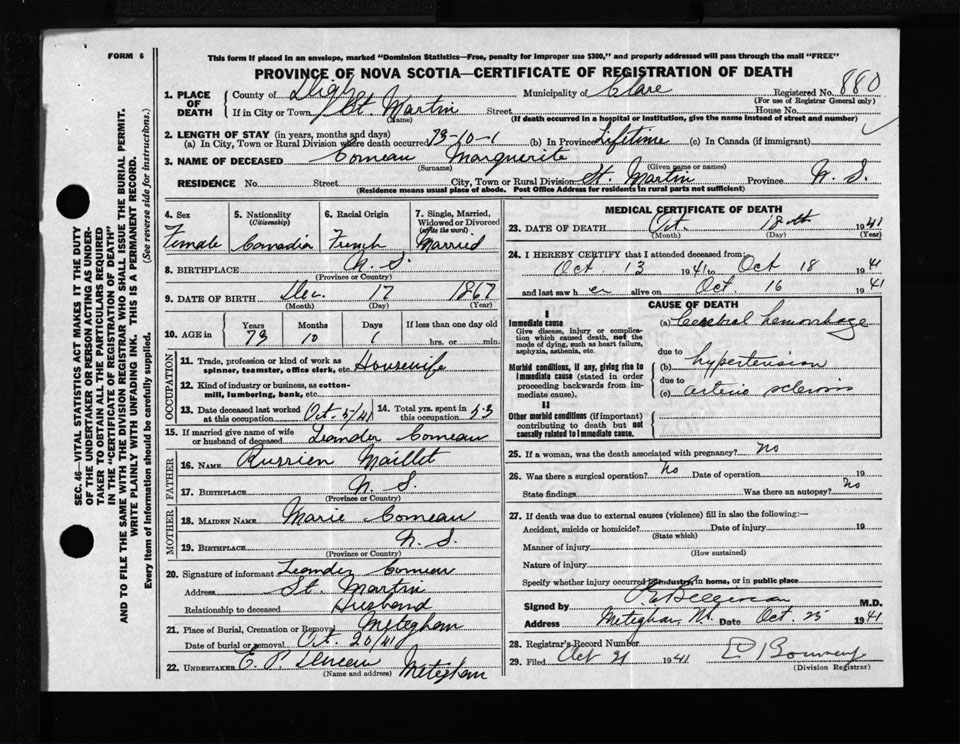 FORM 6
This form if placed in an envelope, marked "Dominion Statistics—Free, penalty for improper use $300," and properly addressed will pass through the mail "FREE"
PROVINCE OF NOVA SCOTIA—CERTIFICATE OF REGISTRATION OF DEATH
1. PLACE OF DEATH { County of Digby Municipality of Clare Registered No. 880
(For use of Registrar General only)
If in City or Town St. Martin Street House No.
(Name) (If death occurred in a hospital or institution, give the name instead of street and number)
2. LENGTH OF STAY (in years, months and days)
(a) In City, Town or Rural Division where death occurred 73-10-1 (b) In Province Lifetime (c) In Canada (if immigrant)
3. NAME OF DECEASED Comeau Marguerite
(Surname) (Given name or names)
RESIDENCE No. Street City, Town or Rural Division St. Martin Province N. S.
(Residence means usual place of abode. Post Office Address for residents in rural parts not sufficient)
4. Sex Female
5. Nationality (Citizenship) Canadian
6. Racial Origin French
7. Single, Married, Widowed or Divorced (write the word) Married
8. BIRTHPLACE N. S.
(Province or Country)
9. DATE OF BIRTH Dec. 17 1867
(Month) (Day) (Year)
10. AGE in Years 73 Months 10 Days 1 If less than one day old hrs. or min.
OCCUPATION
11. Trade, profession or kind of work as spinner, teamster, office clerk, etc. Housewife
12. Kind of industry or business, as cotton-mill, lumbering, bank, etc.
13. Date deceased last worked at this occupation Oct. 5/41 14. Total yrs. spent in this occupation 53
15. If married give name of wife or husband of deceased Leander Comeau
FATHER
16. NAME Maillet
17. BIRTHPLACE N. S.
(Province or Country)
MOTHER
18. MAIDEN NAME Marie Comeau
19. BIRTHPLACE N. S.
(Province or Country)
20. Signature of informant Leander Comeau
Address St. Martin
Relationship to deceased Husband
21. Place of Burial, Cremation or Removal Meteghan
Date of burial or removal Oct. 20/41
22. UNDERTAKER E. P. Meteghan
(Name and address)
MEDICAL CERTIFICATE OF DEATH
23. DATE OF DEATH Oct. 18th 1941
(Month) (Day) (Year)
24. I HEREBY CERTIFY that I attended deceased from
Oct 13 1941 to Oct 18 1941
and last saw her alive on Oct. 16 1941
CAUSE OF DEATH
I
Immediate cause
Give disease, injury or complication which caused death, not the mode of dying, such as heart failure, asphyxia, asthenia, etc.
(a) Cerebral hemorrhage
due to
Morbid conditions, if any, giving rise to immediate cause (stated in order proceeding backwards from immediate cause).
(b) hypertension
due to
(c) arterio sclerosis
II
Other morbid conditions (if important) contributing to death but not causally related to immediate cause.
25. If a woman, was the death associated with pregnancy? no
26. Was there a surgical operation? no Date of operation 19
State findings Was there an autopsy? no
27. If death was due to external causes (violence) fill in also the following:—
Accident, suicide or homicide? Date of injury 19
(State which)
Manner of injury
(How sustained)
Nature of injury
Specify whether injury occurred in industry, in home, or in public place
Signed by M.D.
Address Meteghan, N.S. Date Oct. 25 1941
28. Registrar's Record Number
29. Filed Oct 21 1941
(Division Registrar)
SEC. 46—VITAL STATISTICS ACT MAKES IT THE DUTY
OF THE UNDERTAKER OR PERSON ACTING AS UNDER-
TAKER TO OBTAIN ALL THE PARTICULARS REQUIRED
IN THE "CERTIFICATE OF REGISTRATION OF DEATH"
AND TO FILE THE SAME WITH THE DIVISION REGISTRAR WHO SHALL ISSUE THE BURIAL PERMIT.
WRITE PLAINLY WITH UNFADING INK. THIS IS A PERMANENT RECORD.
Every item of information should be carefully supplied. (See reverse side for instructions.)